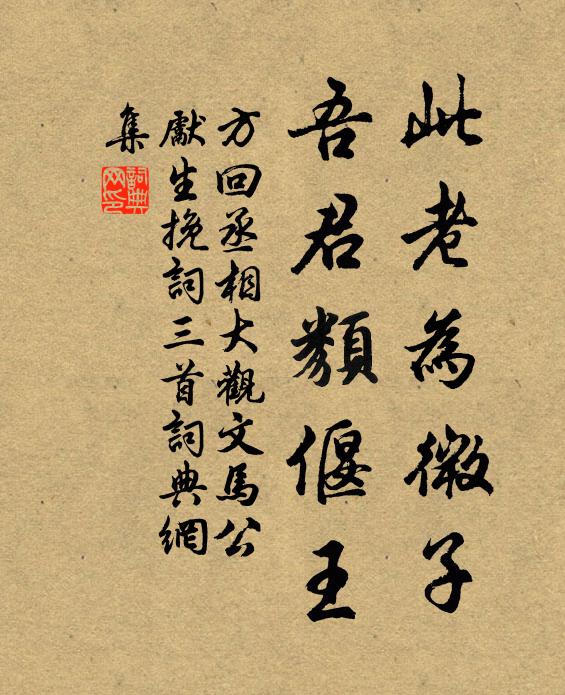 此老為微子
吾君類偃王
方回丞相大觀文馬公
獻生挽詞三首詞典網
集
詞典網印